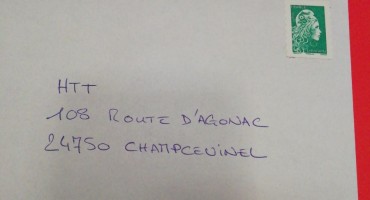 HTT
108 ROUTE D'AGONAC
24750 CHAMPCEVINEL